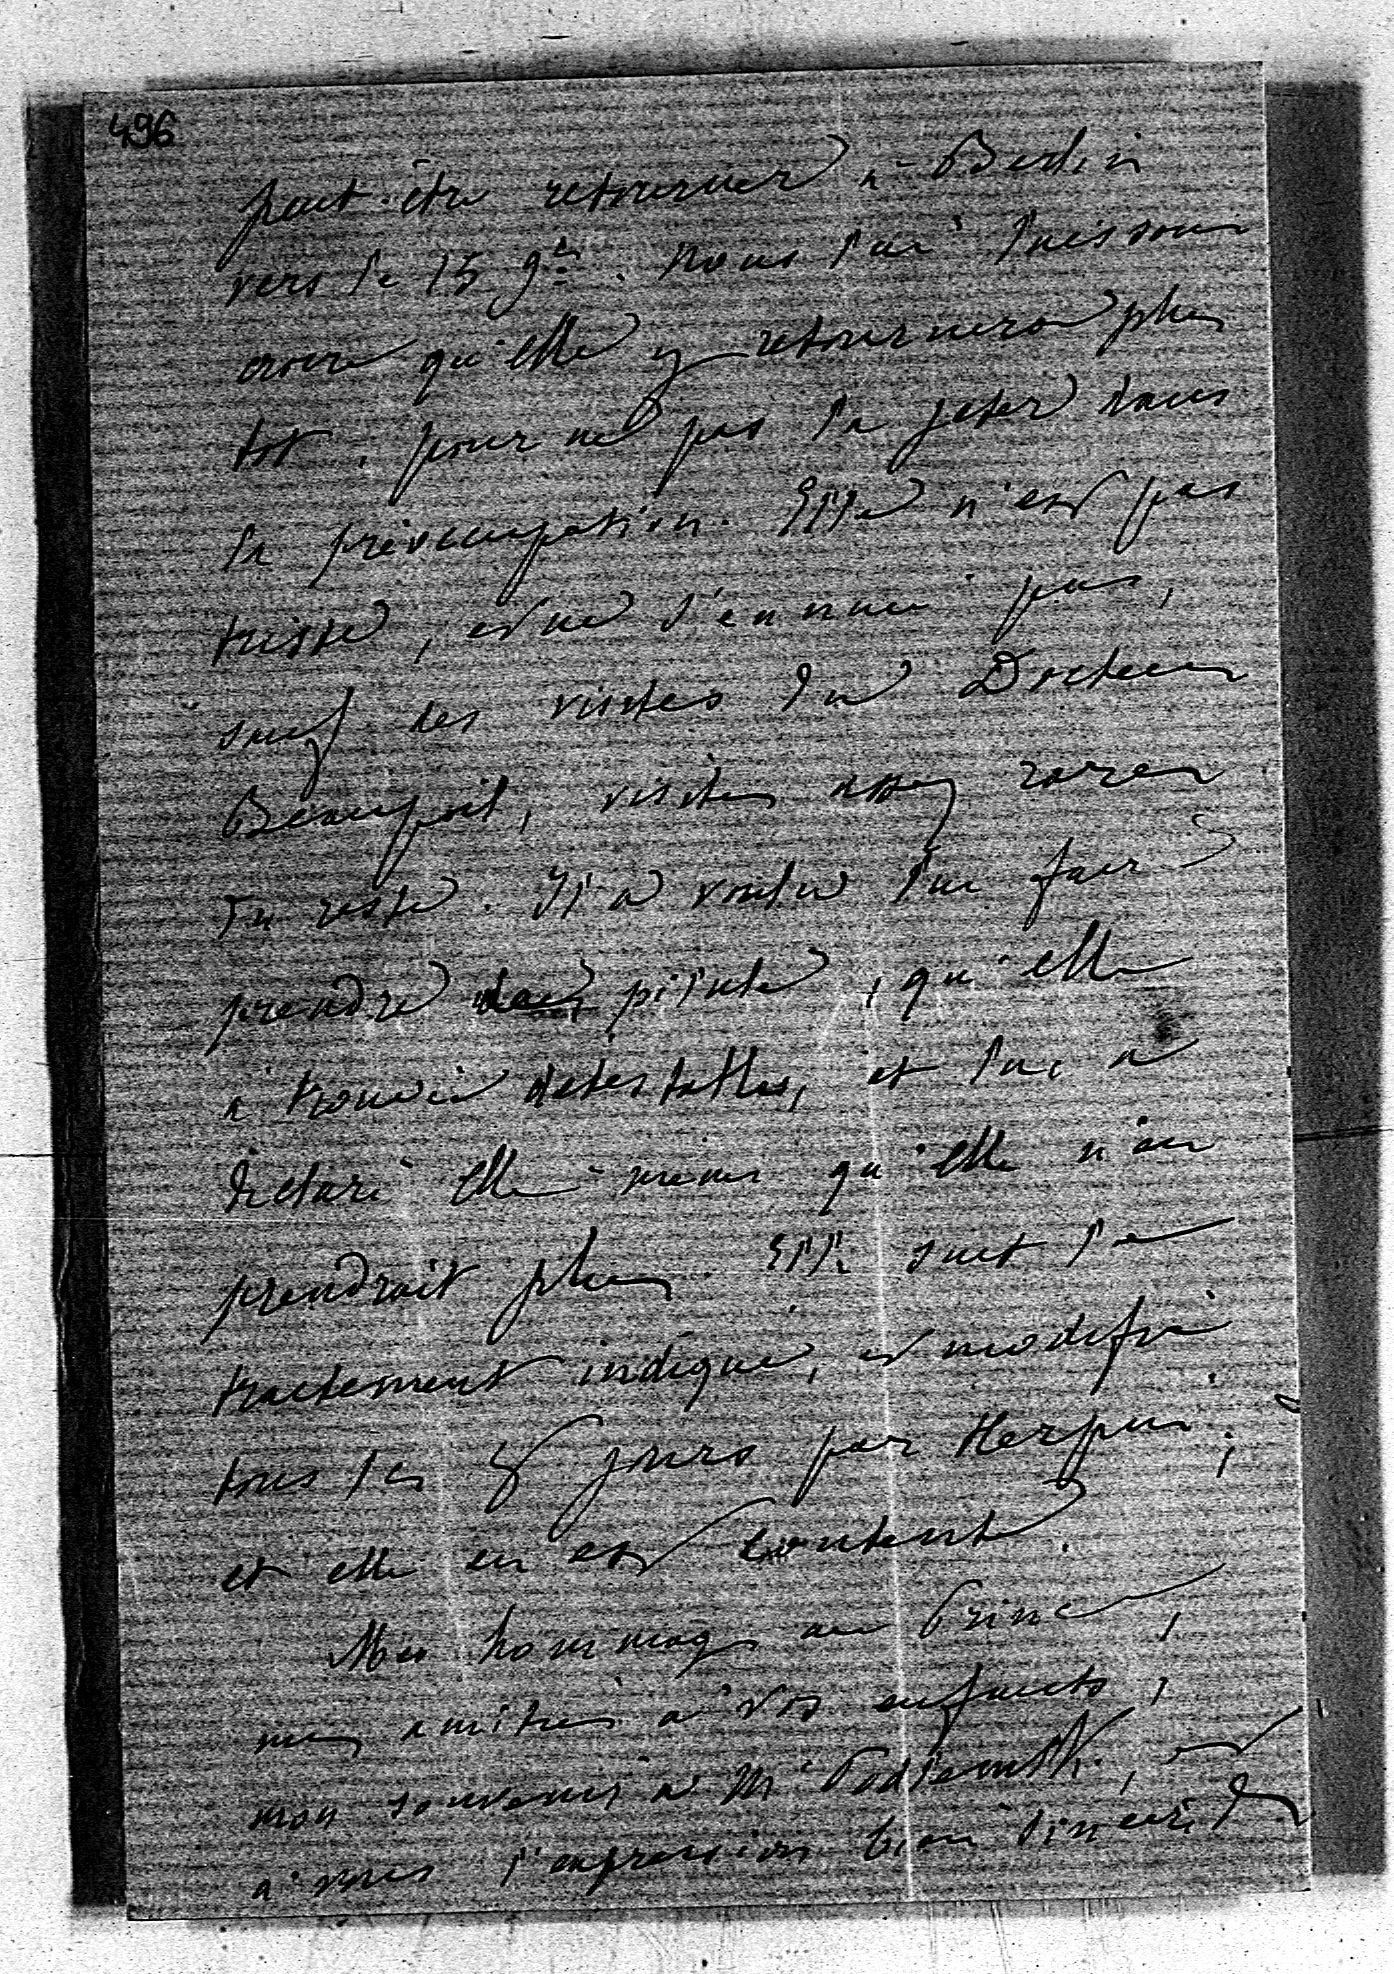 496
peut-être retourner à Berlin
vers le 15 9bre. Nous lui laissons
croire qu'elle y retournera plus
tot, pour ne pas la jeter dans
la préoccupation. Elle n'est pas
triste, et ne s'ennuie pas,
sauf des visites du Docteur
Beaupoil, visites assez rares
du reste. Il a voulu lui faire
prendre des pilules, qu'elle
a trouvé detestables, et lui a
déclaré elle-même qu'elle n'en
prendrait plus. Elle suit le
traitement indiqué, et modifié
tous les 8 jours par Herpin;
et elle en est contente.
Mes hommages au Prince,
mes amitiés à vos enfants,
mon souvenir à Mr, et
à vous l'expression bien sincère de